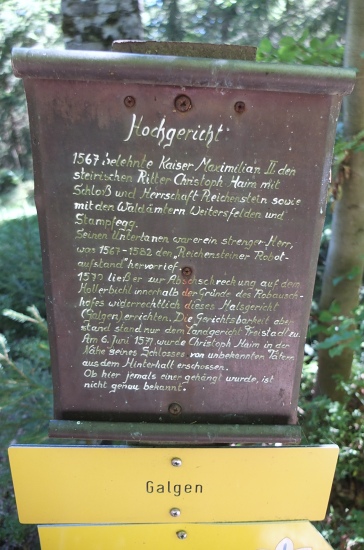 Hochgericht:
1567 belehnte Kaiser Maximilian II. den
steirischen Ritter Christoph Haim mit
Schloß und Herrschaft Reichenstein sowie
mit den Waldämtern Weitersfelden und
Stampfegg.
Seinen Untertanen war er ein strenger Herr,
was 1567-1582 den "Reichensteiner Robot-
aufstand" hervorrief.
1570 ließ er zur Abschreckung auf dem
Hollerbichl innerhalb der Gründe des
hofes widerrechtlich dieses Halsgericht
(Galgen) errichten. Die Gerichtsbarkeit abe
stand stand nur dem Landgericht Freistadt zu.
Am 6. Juni 1571 wurde Christoph Haim in der
Nähe seines Schlosses von unbekannten Tätern
aus dem Hinterhalt erschossen.
Ob hier jemals einer gehängt wurde, ist
nicht genau bekannt.
Galgen